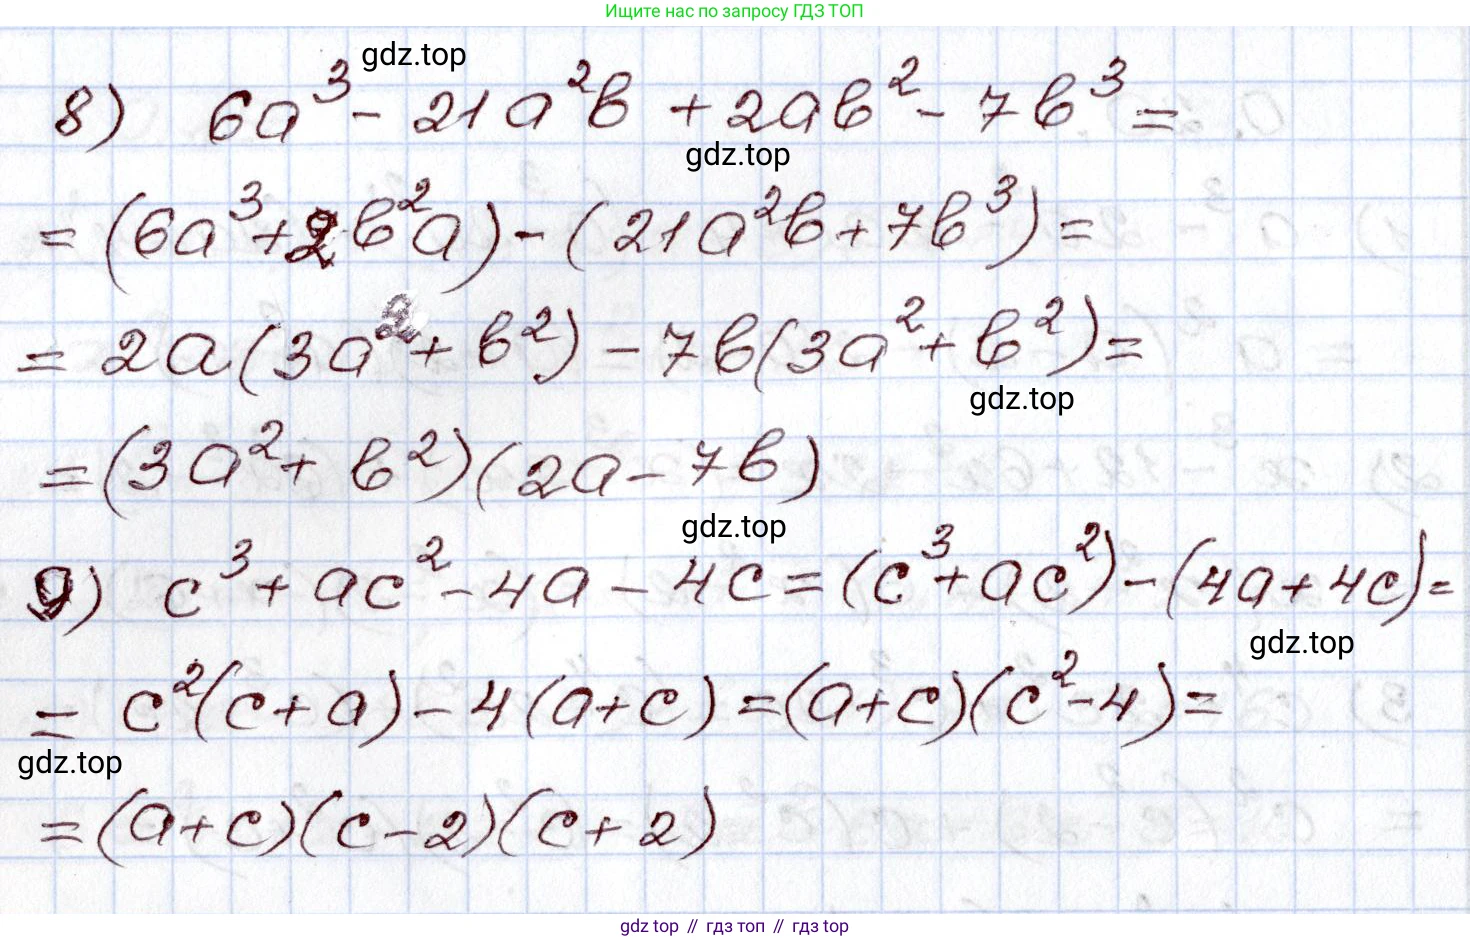 Ищите нас по запросу ГДЗ ТОП
gdz.top
8) 6a³ - 21a²b + 2ab² - 7b³ =
gdz.top
= (6a³ + 2b²a) - (21a²b + 7b³) =
= 2a(3a² + b²) - 7b(3a² + b²) =
gdz.top
= (3a² + b²)(2a - 7b)
gdz.top
9) c³ + ac² - 4a - 4c = (c³ + ac²) - (4a + 4c) =
gdz.top
= c²(c + a) - 4(a + c) = (a + c)(c² - 4) =
gdz.top
= (a + c)(c - 2)(c + 2)
gdz top // гдз топ // гдз top